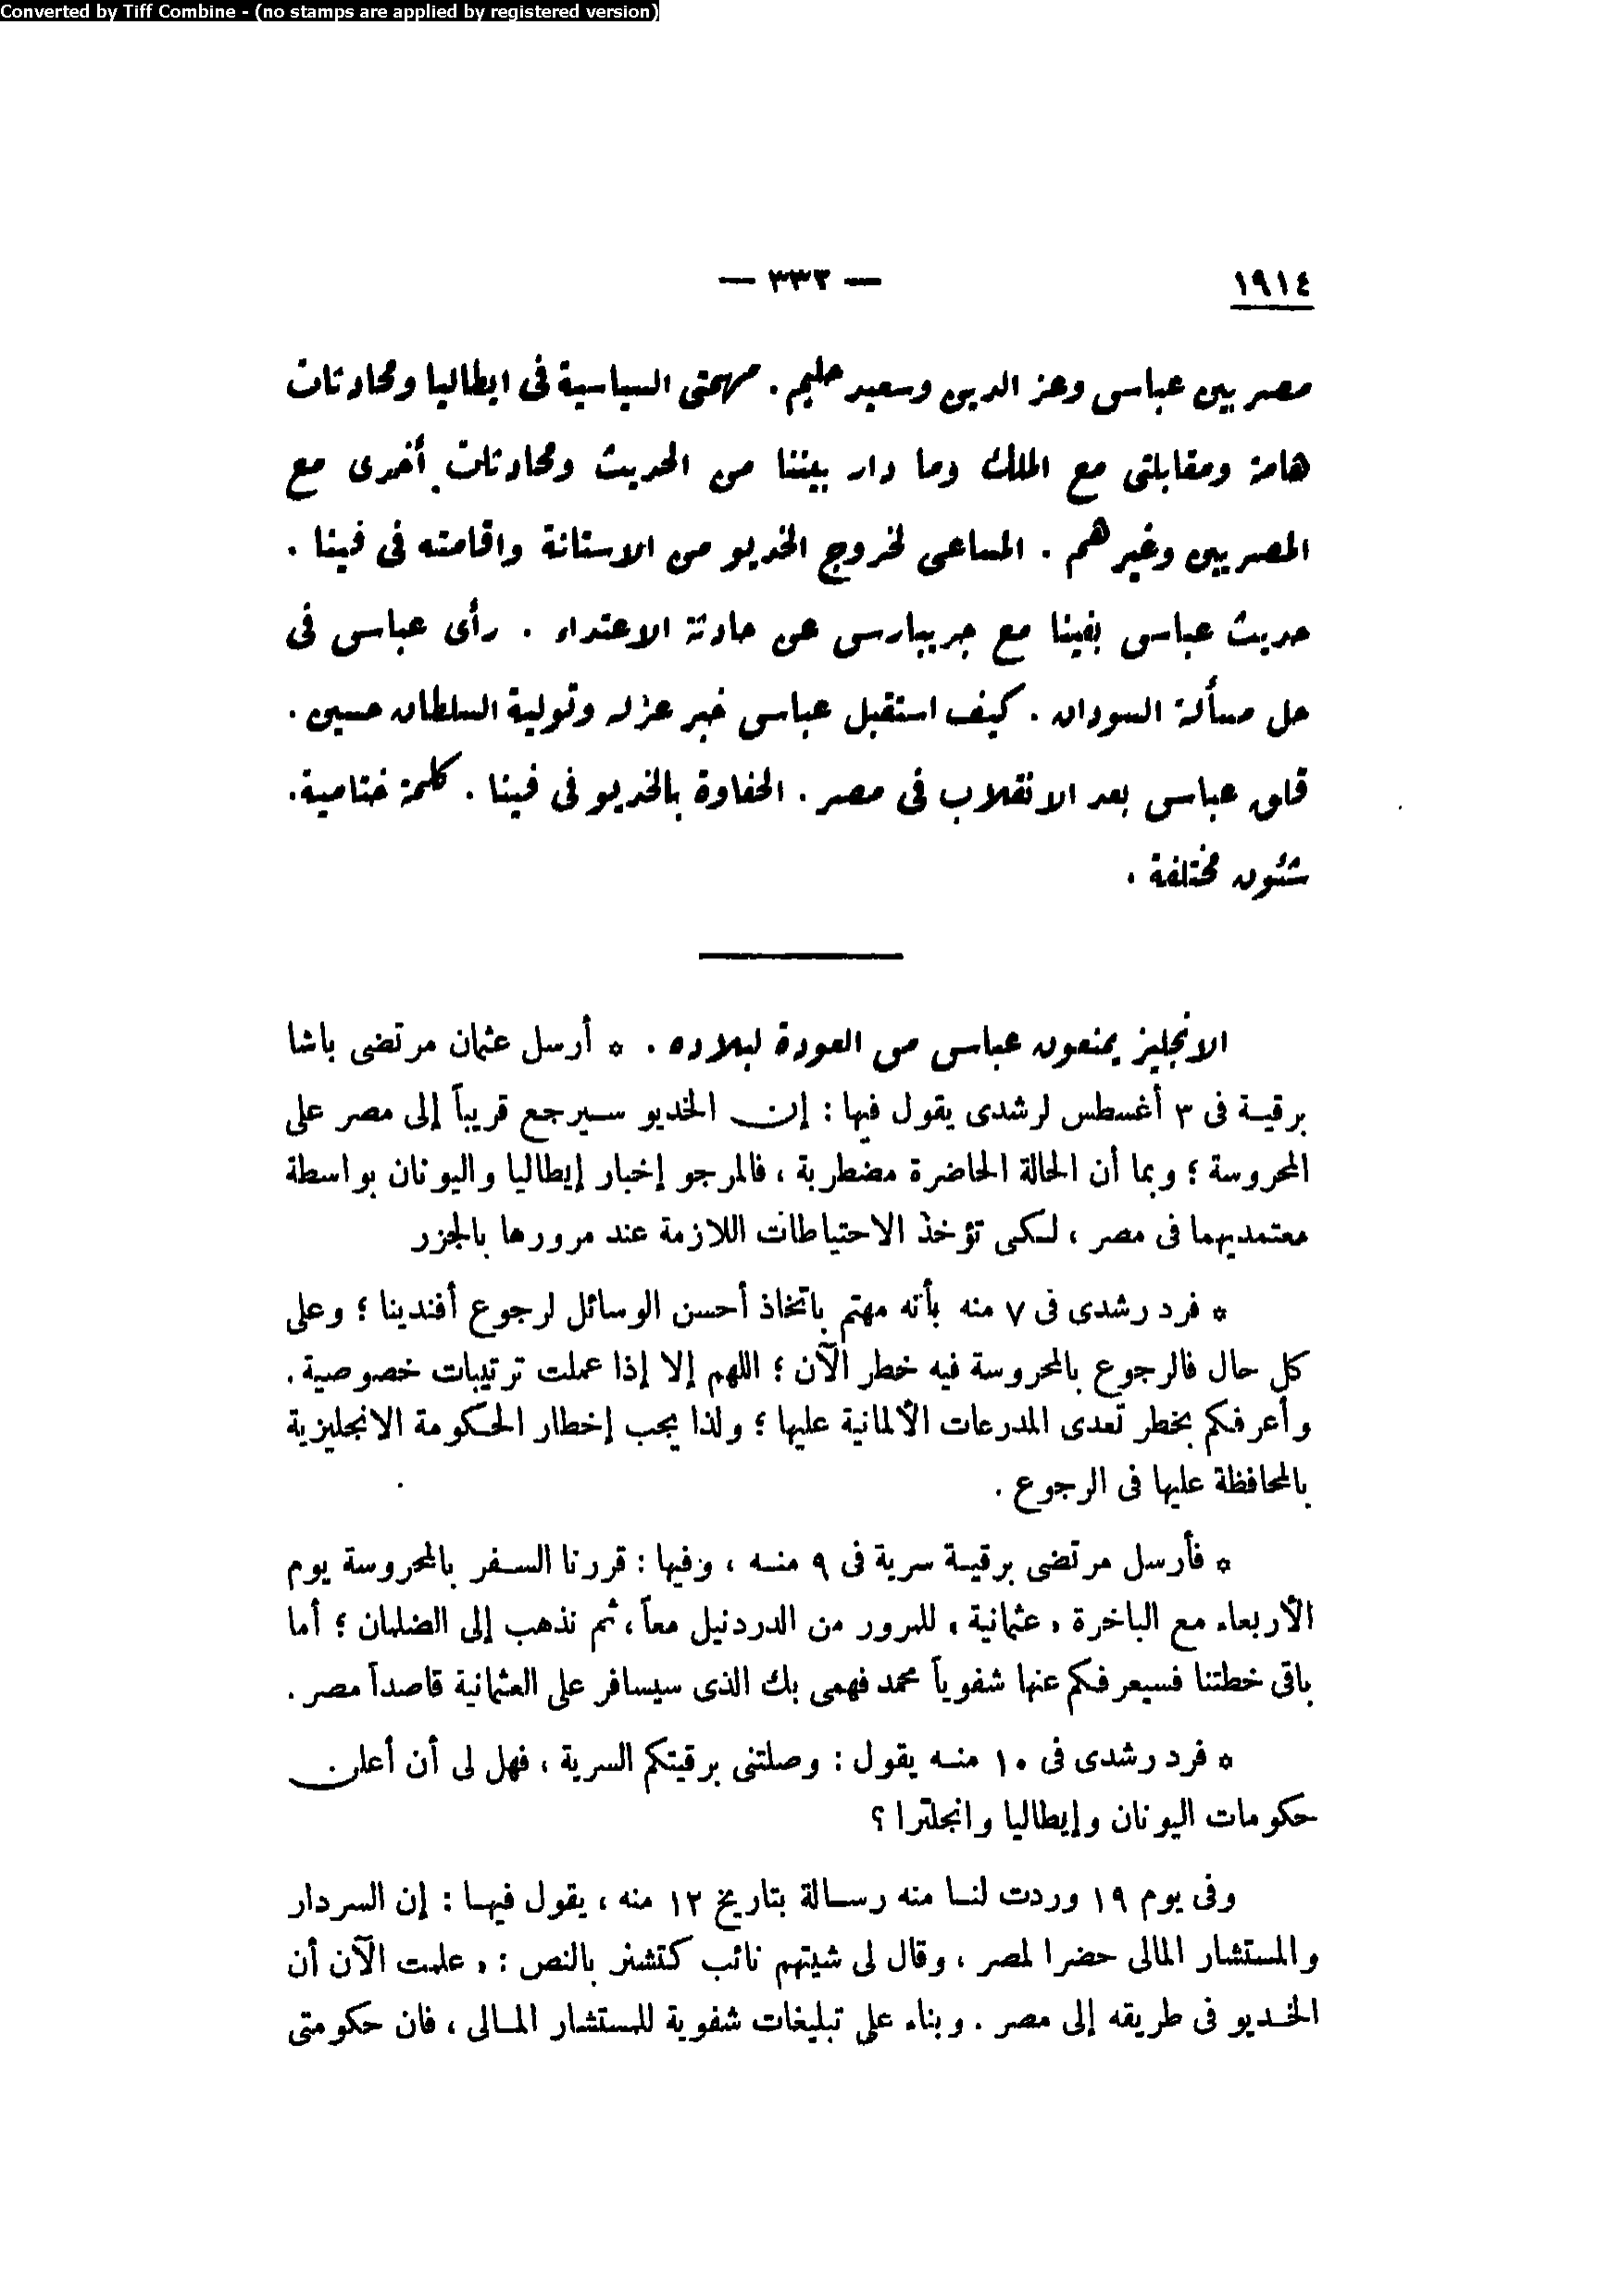 Converted by Tiff Combine - (no stamps are applied by registered version)
١٩١٤
— ٣٣٣ —
مصر بين عباس وعز الدين وسعيد حليم . مهمتى السياسية فى ايطاليا ومحادثات
هامة ومقابلتى مع الملك وما دار بيننا من الحديث ومحادثات أخرى مع
المصريين وغيرهم . المساعى لخروج الخديو من الاستانة واقامته فى فينا .
حديث عباس بفينا مع جريبارسى عن حادثة الاعتداء . رأى عباس فى
حل مسألة السودان . كيف استقبل عباس خبر عزله وتولية السلطان حسين .
قلق عباس بعد الانقلاب فى مصر . الحفاوة بالخديو فى فينا . كلمة ختامية .
شئون مختلفة .
الانجليز يمنعون عباس من العودة لبلاده . * أرسل عثمان مرتضى باشا
برقية فى ٣ أغسطس لرشدى يقول فيها : إن الخديو سيرجع قريباً إلى مصر على
المحروسة ؛ وبما أن الحالة الحاضرة مضطربة ، فالمرجو إخبار إيطاليا واليونان بواسطة
معتمديهما فى مصر ، لكى تؤخذ الاحتياطات اللازمة عند مرورها بالجزر
* فرد رشدى فى ٧ منه بأنه مهتم باتخاذ أحسن الوسائل لرجوع أفندينا ؛ وعلى
كل حال فالرجوع بالمحروسة فيه خطر الآن ؛ اللهم إلا إذا عملت ترتيبات خصوصية .
وأعرفكم بخطر تعدى المدرعات الألمانية عليها ؛ ولذا يجب إخطار الحكومة الانجليزية
بالمحافظة عليها فى الرجوع .
* فأرسل مرتضى برقية سرية فى ٩ منه ، وفيها : قررنا السفر بالمحروسة يوم
الأربعاء مع الباخرة « عثمانية » للمرور من الدردنيل معاً ، ثم نذهب إلى الضلمان ؛ أما
باقى خطتنا فسيعرفكم عنها شفوياً محمد فهمى بك الذى سيسافر على العثمانية قاصداً مصر .
* فرد رشدى فى ١٠ منه يقول : وصلتنى برقيتكم السرية ، فهل لى أن أعلن
حكومات اليونان وإيطاليا وانجلترا ؟
وفى يوم ١٩ وردت لنا منه رسالة بتاريخ ١٢ منه ، يقول فيها : إن السردار
والمستشار المالى حضرا لمصر ، وقال لى شيتهم نائب كتشنر بالنص : « علمت الآن أن
الخديو فى طريقه إلى مصر . وبناء على تبليغات شفوية للمستشار المالى ، فان حكومتى